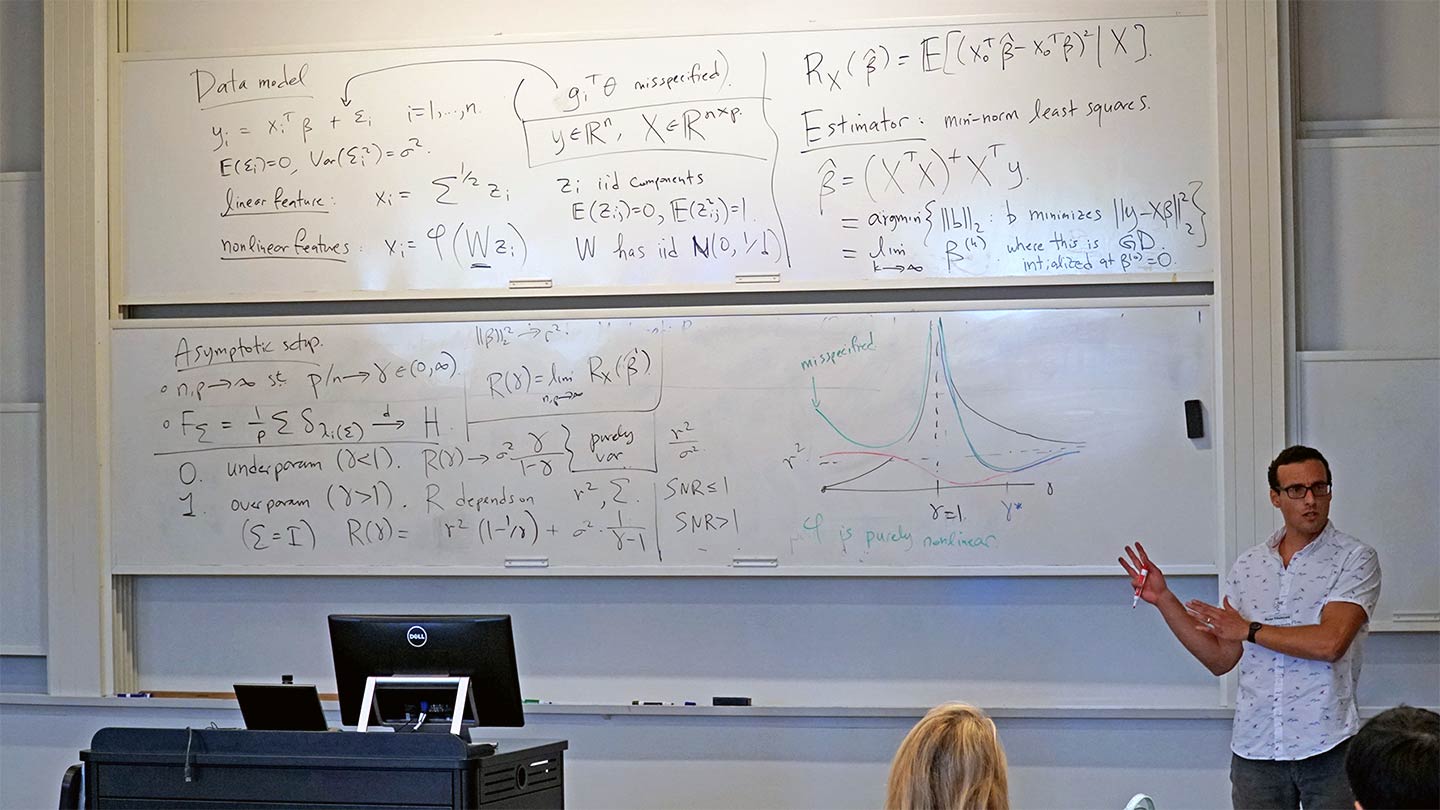 Data model
y_i = x_i^T β + ε_i   i=1,...,n.
E(ε_i)=0, Var(ε_i^2)=σ^2.
linear feature:   x_i = Σ^{1/2} z_i   z_i iid components
E(z_ij)=0, E(z_ij^2)=1.
nonlinear features:   x_i = φ(W z_i)   W has iid N(0, 1/d)
( g_i^T θ misspecified).
y∈ℝ^n, X∈ℝ^{n×p}.
R_X(β̂) = E[(x_0^T β̂ - x_0^T β)^2 | X].
Estimator: min-norm least squares.
β̂ = (X^T X)^+ X^T y.
= argmin{ ||b||_2 : b minimizes ||y-Xβ||_2^2 }
= lim_{k→∞} β^{(k)}. where this is GD.
intialized at β^{(0)}=0.
Asymptotic setup.
∘ n,p→∞ st. p/n→γ∈(0,∞).
∘ F_Σ = 1/p Σ δ_{λ_i(Σ)} →^d H.
||β||_2^2 → r^2.
R(γ) = lim_{n,p→∞} R_X(β̂)
0. underparam (γ<1). R(γ) → σ^2 γ/(1-γ) } purely var.
1. overparam (γ>1). R depends on r^2, Σ.
(Σ=I) R(γ) = r^2 (1-1/γ) + σ^2 · 1/(γ-1)
r^2/σ^2
SNR≤1
SNR>1
misspecified
r^2
γ=1.
γ*
γ
φ is purely nonlinear
DELL